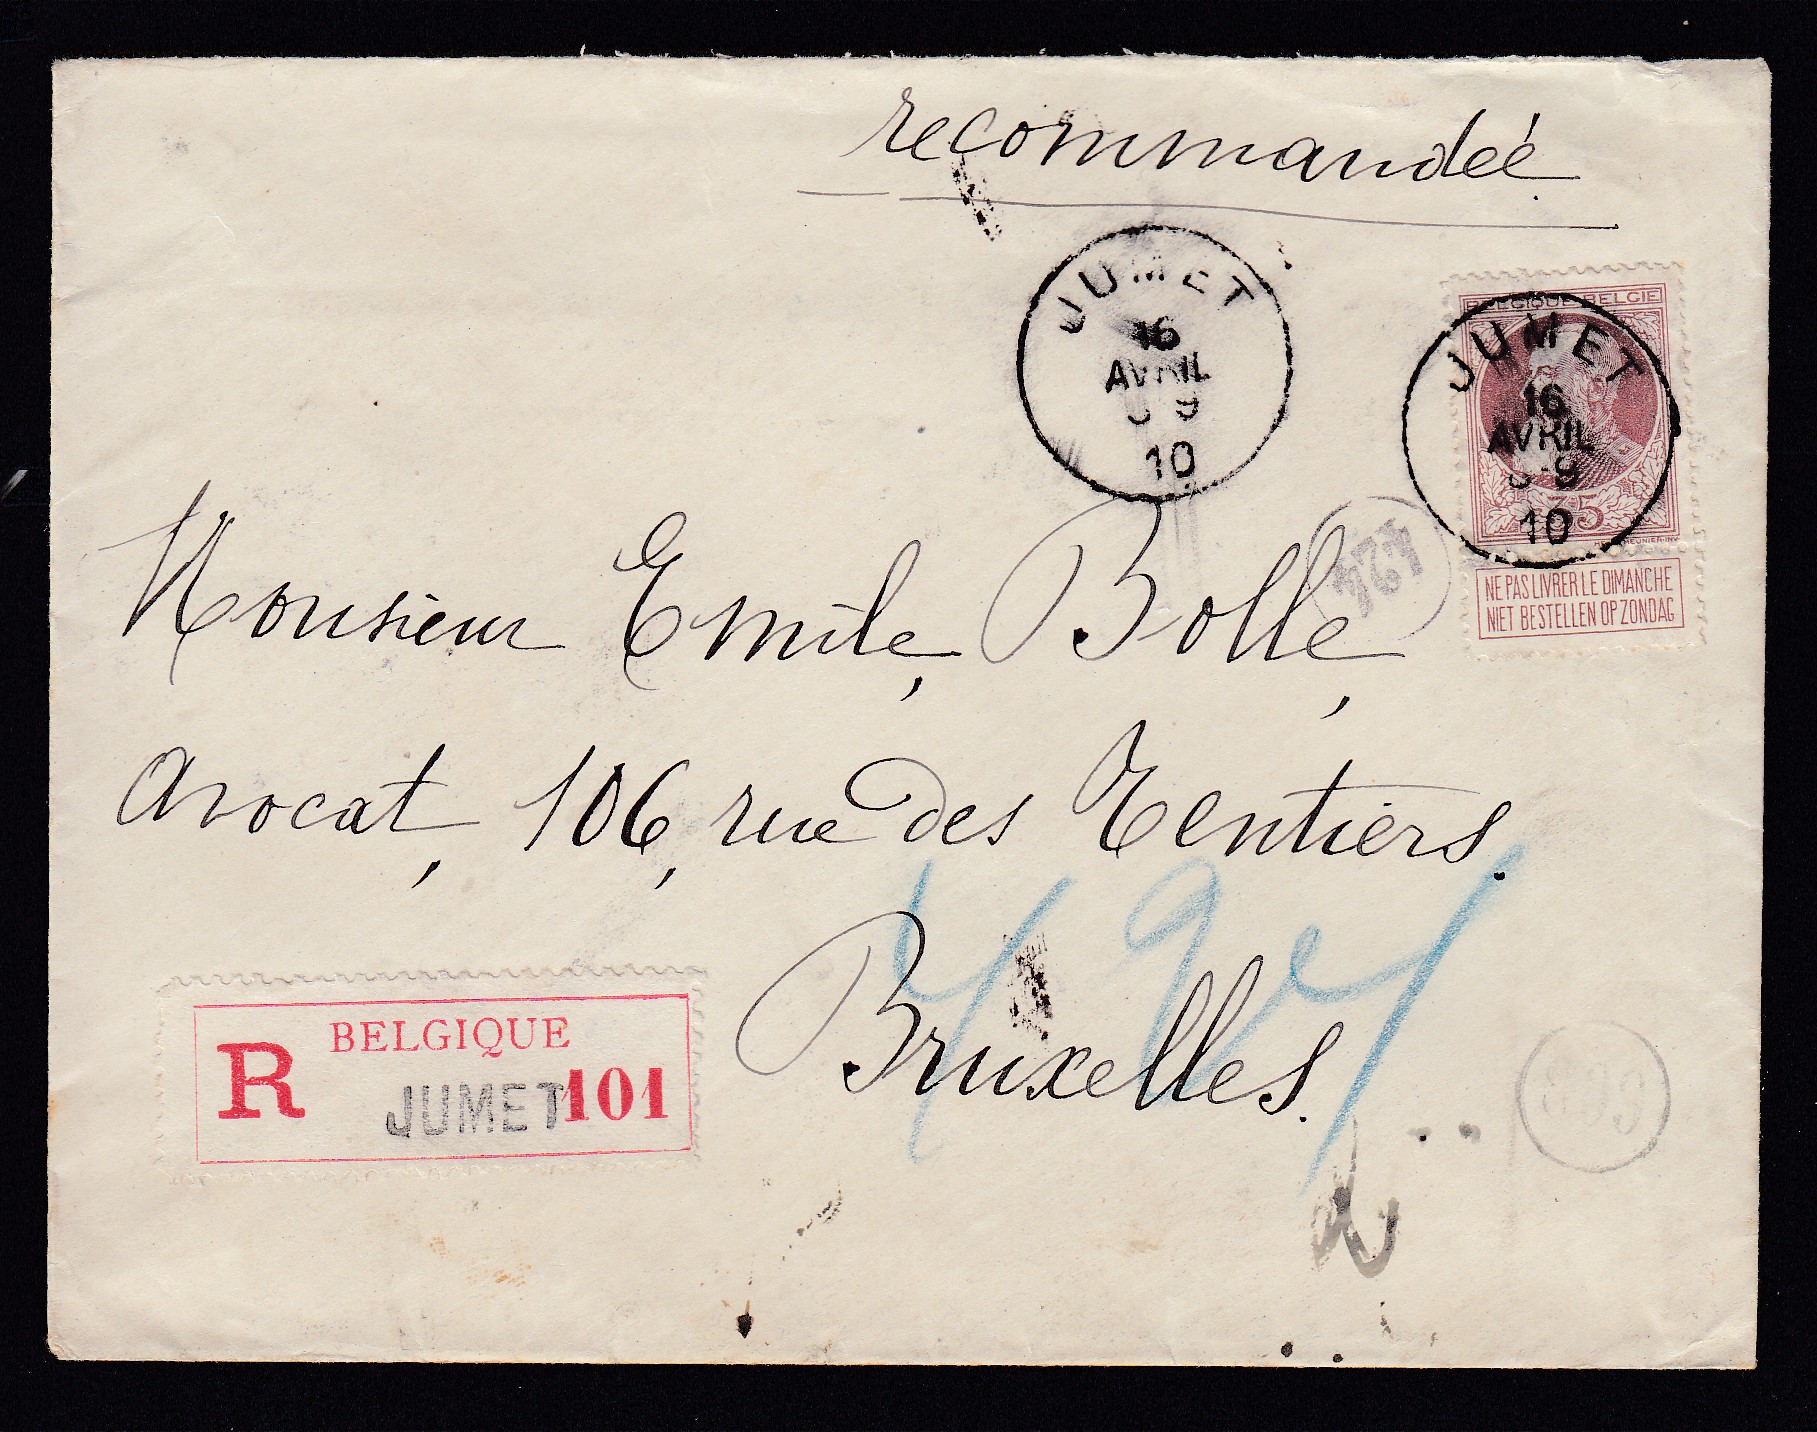 recommandée
JUMET
16
AVRIL
9
10
BELGIQUE BELGIE
JUMET
16
AVRIL
9
10
35
NE PAS LIVRER LE DIMANCHE
NIET BESTELLEN OP ZONDAG
424
Monsieur Emile Bolle,
Avocat, 106, rue des Rentiers.
Bruxelles.
R BELGIQUE
JUMET 101